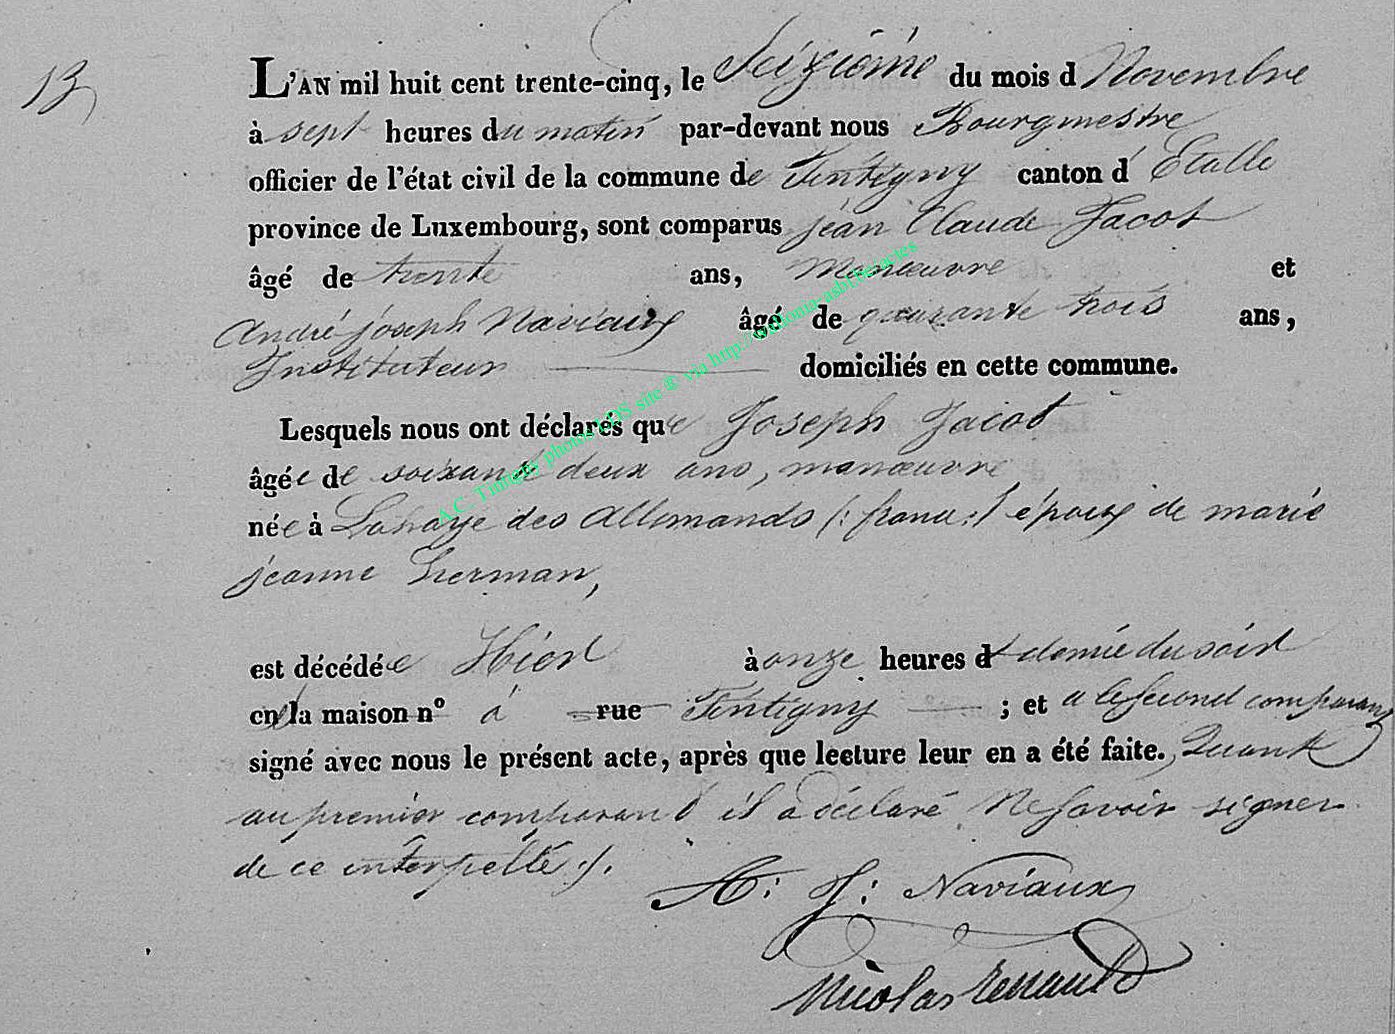 13
L'AN mil huit cent trente-cinq, le Seizième du mois d Novembre
à sept heures du matin par-devant nous Bourgmestre
officier de l'état civil de la commune de Tintigny canton d Etalle
province de Luxembourg, sont comparus jean Claude Jacot
âgé de trente ans, Manœuvre et
andré joseph Naviaux âgé de quarante trois ans,
Instituteur domiciliés en cette commune.
Lesquels nous ont déclarés que Joseph Jacot
âgée de soixante deux ans, manœuvre
née à Lahaye des allemands (: france :) époux de marie
jeanne Herman,
est décédée Hier à onze heures d demie du soir
en la maison n° à rue Tintigny ; et a le second comparant
signé avec nous le présent acte, après que lecture leur en a été faite. Quant
au premier comparant il a déclaré Ne savoir signer
de ce interpellé ./.
A: J: Naviaux
Nicolas Renauld
A.C. Tintigny photos LDS site ® via http://luxonia-asbl.be/actes